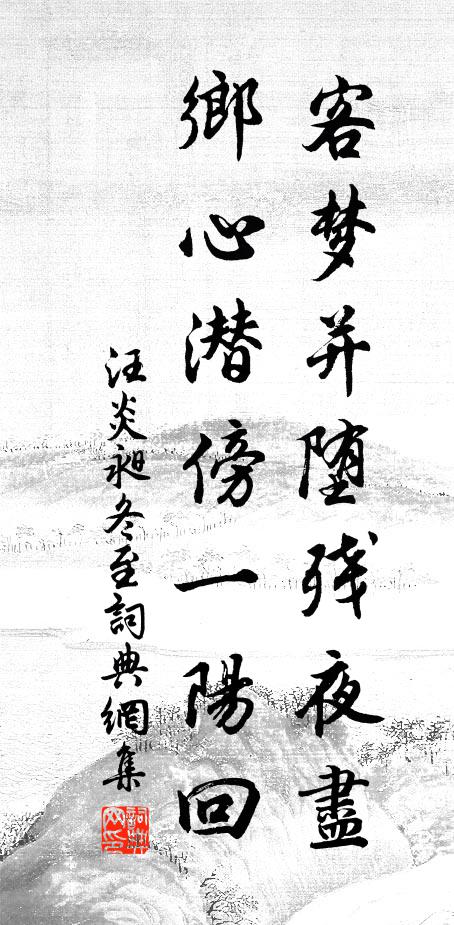 客梦并堕残夜盡
鄉心潜傍一陽回
汪炎昶冬至詞典網集